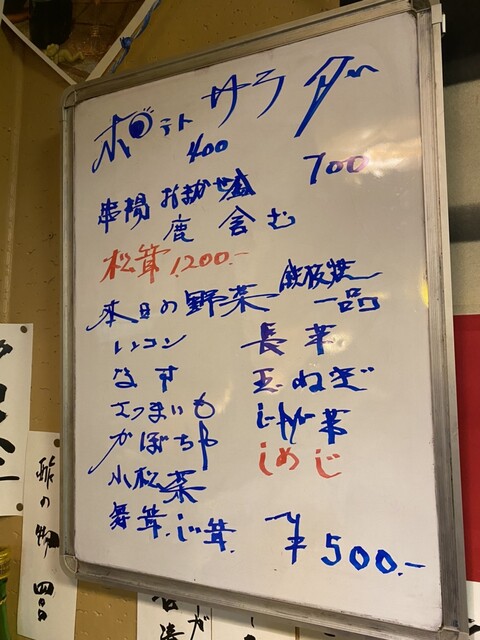 ポテトサラダ
400
700
串揚おまかせ盛
鹿含む
松茸1,200.-
本日の野菜 鉄板焼
一品
レンコン 長芋
なす 玉ねぎ
さつまいも じゃが芋
かぼちゃ しめじ
小松菜
舞茸.
¥500.-
酢の物 四